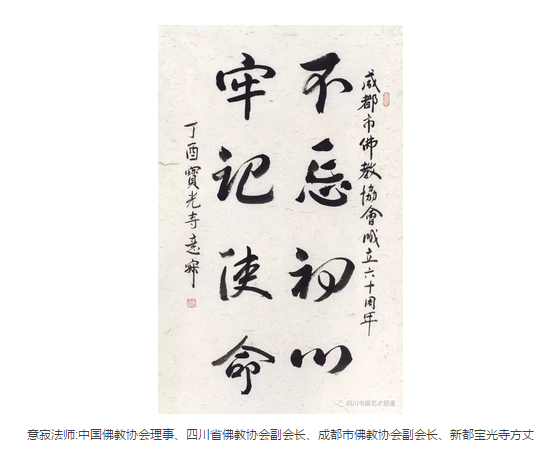 成都市佛教協會成立六十周年
不忘初心
牢记使命
丁酉寶光寺意寂
四川书画艺术圈道
意寂法师:中国佛教协会理事、四川省佛教协会副会长、成都市佛教协会副会长、新都宝光寺方丈